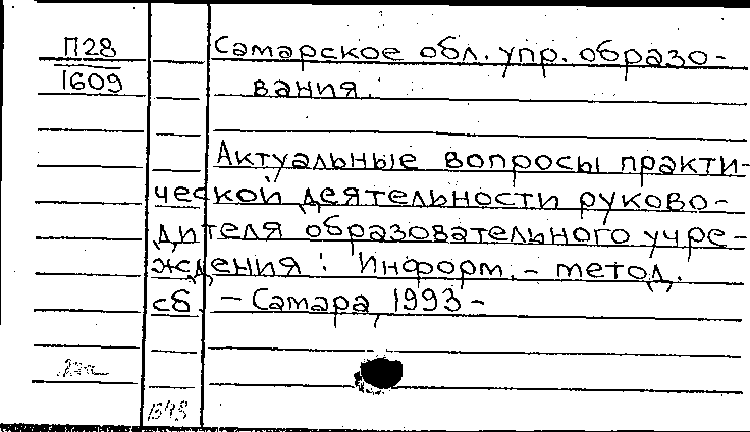 П28
1609
Самарское обл. упр. образо-
вания.
Актуальные вопросы практи-
ческой деятельности руково-
дителя образовательного учре-
ждения : Информ. - метод.
сб. - Самара, 1993 -